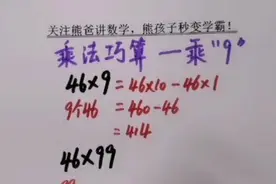 关注熊爸讲数学，熊孩子秒变学霸！
乘法巧算—乘"9"
46×9=46×10-46×1
9个46 =460-46
=414
46×99